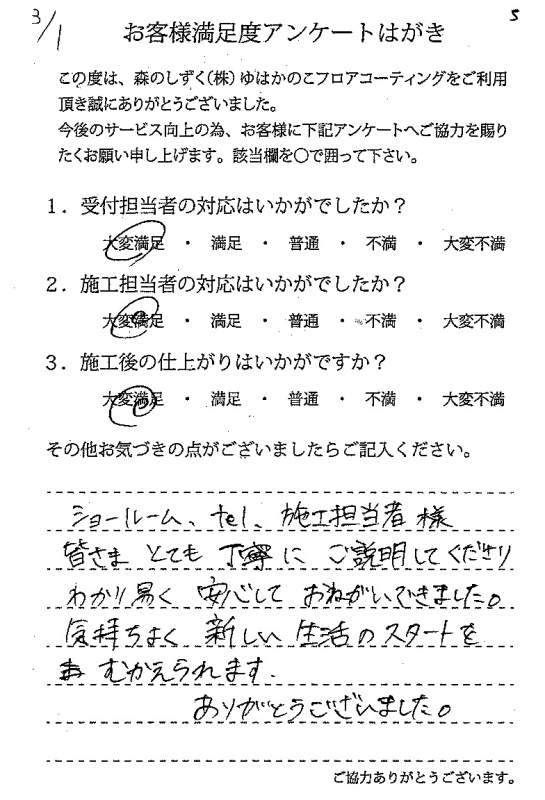 3/1
s
お客様満足度アンケートはがき
この度は、森のしずく(株)ゆはかのこフロアコーティングをご利用
頂き誠にありがとうございました。
今後のサービス向上の為、お客様に下記アンケートへご協力を賜り
たくお願い申し上げます。該当欄を○で囲って下さい。
1．受付担当者の対応はいかがでしたか？
大変満足 ・ 満足 ・ 普通 ・ 不満 ・ 大変不満
2．施工担当者の対応はいかがでしたか？
大変満足 ・ 満足 ・ 普通 ・ 不満 ・ 大変不満
3．施工後の仕上がりはいかがですか？
大変満足 ・ 満足 ・ 普通 ・ 不満 ・ 大変不満
その他お気づきの点がございましたらご記入ください。
ショールーム、tel、施工担当者様
皆さま とても 丁寧に ご説明してくださり
わかり易く 安心して おねがいできました。
気持ちよく 新しい 生活のスタートを
むかえられます。
ありがとうございました。
ご協力ありがとうございます。